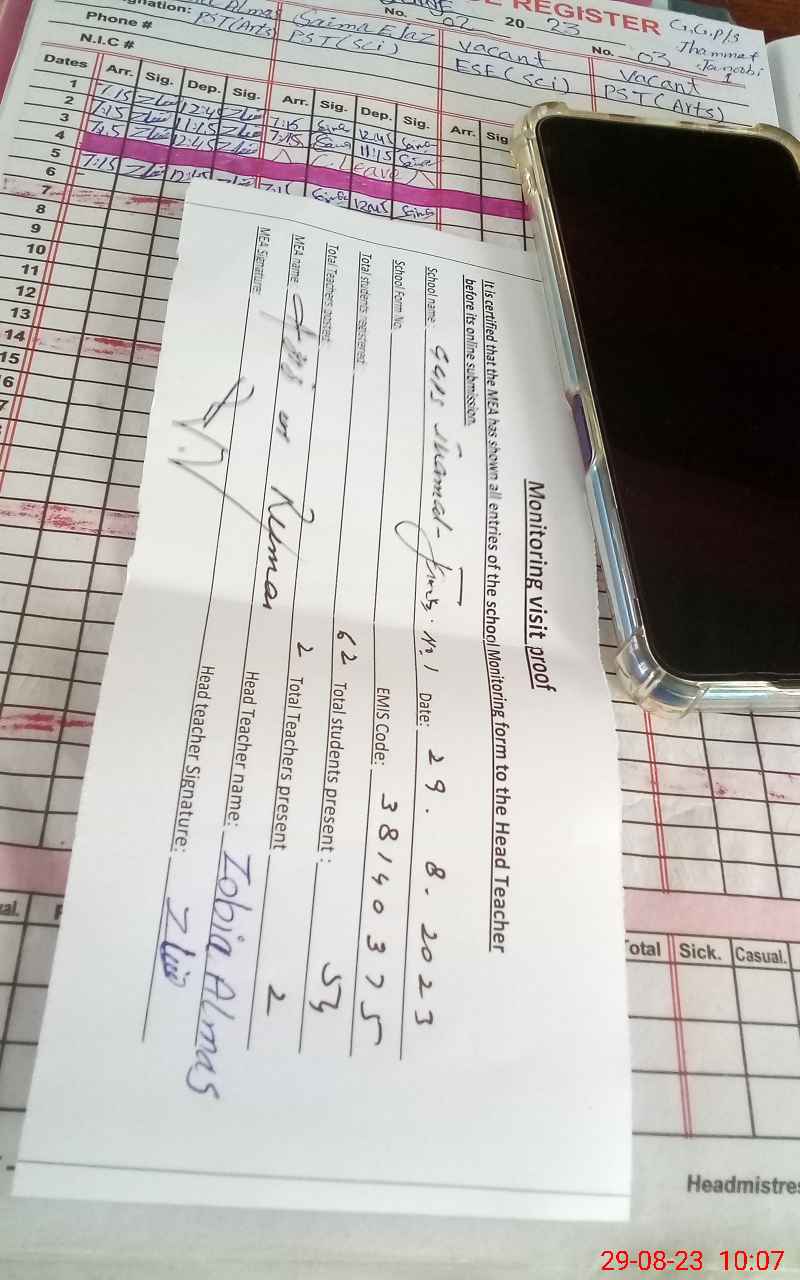 REGISTER
G.G.P/S
Jhammat
Janobi
gnation:
Almas
PST(Arts)
Saima Ejaz
PST(Sci)
No. 02 20 23
vacant
ESE(Sci)
No. 03
vacant
PST(Arts)
Phone #
N.I.C #
Dates Arr. Sig. Dep. Sig. Arr. Sig. Dep. Sig. Arr. Sig
1
2 7:15 12:45 7:15 12:45
3 7:15 11:15 7:15 11:15
4 7:15 12:45 C. Leave
5
6 7:15 12:45 7:15 12:45
7
8
9
10
11
12
13
14
15
16
Monitoring visit proof
It is certified that the MEA has shown all entries of the school Monitoring form to the Head Teacher
before its online submission.
School name: No. 1 Date: 29. 8. 2023
School Form No. EMIS Code: 38140375
Total students registered: 62 Total students present: 53
Total Teachers posted: 2 Total Teachers present 2
MEA name: Head Teacher name: Zobia Almas
MEA Signature: Head teacher Signature:
otal Sick. Casual.
Headmistres
29-08-23 10:07